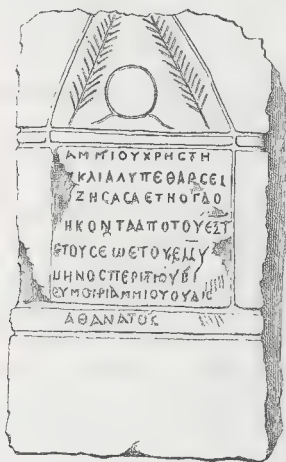 ΑΜΜΙΟΥΧΡΗϹΤΗ
ΚΑΙΑΛΥΠΕΘΑΡϹΕΙ
ΖΗϹΑϹΑΕΤΗΟΓΔΟ
ΗΚΟΝΤΑΑΠΟΤΟΥΕϹΤ
ΕΤΟΥϹ
ΜΗΝΟϹΠΕΡΙΤΙΟΥ
ΕΥΜΟΙΡΙΑΜΜΙΟΥΟΥΔΙϹ
ΑΘΑΝΑΤΟϹ